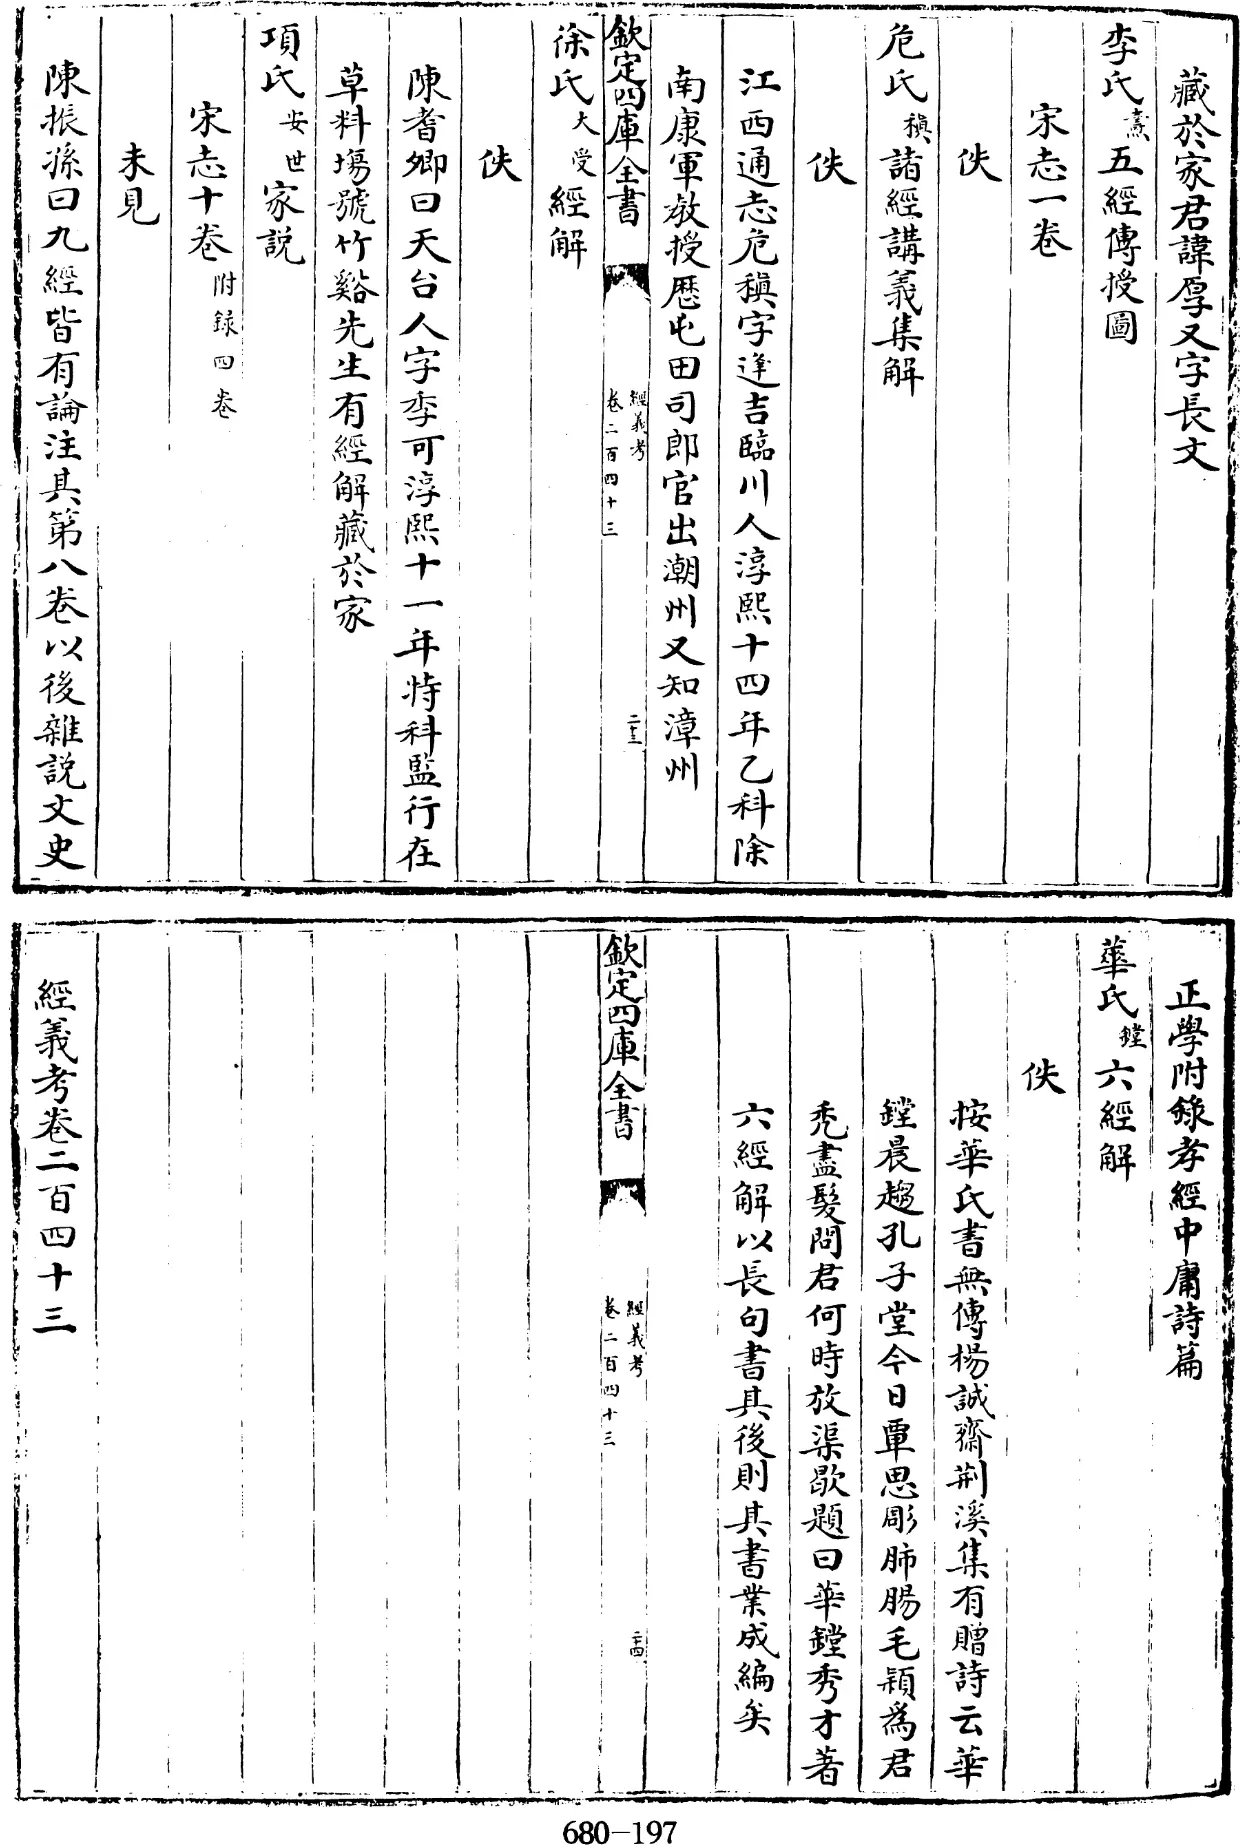 藏於家君諱厚又字長文
李氏燾五經傳授圖
宋志一卷
佚
危氏稹諸經講義集解
佚
江西通志危稹字逢吉臨川人淳熙十四年乙科除
南康軍教授歴屯田司郎官出潮州又知漳州
欽定四庫全書
經義考
卷二百四十三
二十三
徐氏大受經解
佚
陳耆卿曰天台人字季可淳熙十一年特科監行在
草料場號竹谿先生有經解藏於家
項氏安世家説
宋志十卷附録四卷
未見
陳振孫曰九經皆有論注其第八卷以後雜説文史
正學附錄孝經中庸詩篇
華氏鏜六經解
佚
按華氏書無傳楊誠齋荆溪集有贈詩云華
鏜晨趨孔子堂今日覃思彫肺腸毛穎為君
禿盡髮問君何時放渠歇題曰華鏜秀才著
六經解以長句書其後則其書業成編矣
欽定四庫全書
經義考
卷二百四十三
二十四
經義考卷二百四十三
680-197